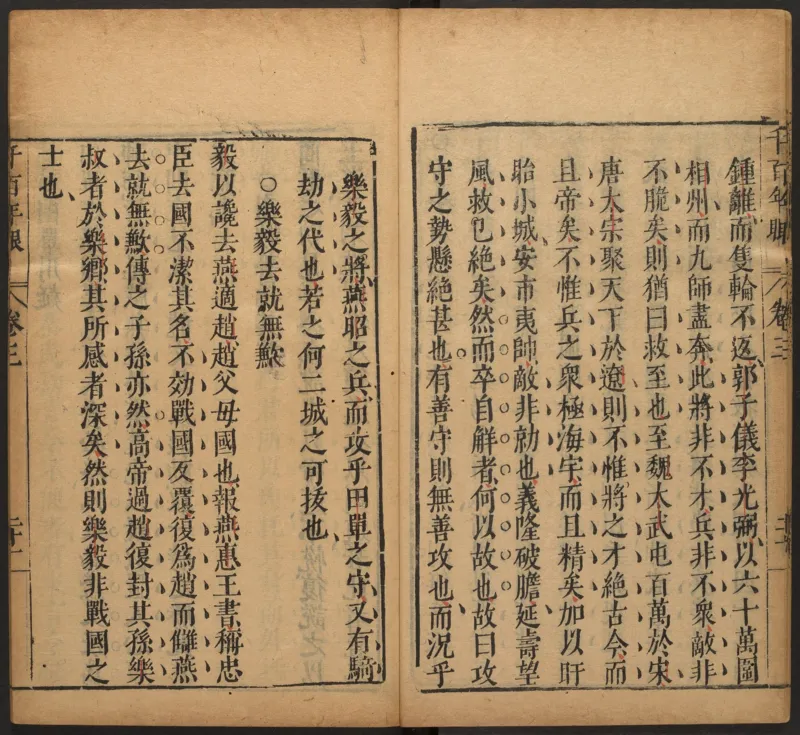 千百年眼 卷三
鍾離而隻輪不返郭子儀李光弼以六十萬圍
相州而九師盡奔此將非不才兵非不衆敵非
不脆矣則猶曰救至也至魏太武屯百萬於宋
唐太宗聚天下於遼則不惟將之才絶古今而
且帝矣不惟兵之衆極海宇而且精矣加以盱
眙小城安市夷帥敵非勍也義隆破膽延壽望
風救已絶矣然而卒自解者何以故也故曰攻
守之勢懸絶甚也有善守則無善攻也而況乎
樂毅之將燕昭之兵而攻乎田單之守又有騎
劫之代也若之何二城之可拔也
○樂毅去就無歉
毅以讒去燕適趙趙父母國也報燕惠王書稱忠
臣去國不潔其名不効戰國反覆復爲趙而讎燕
去就無歉傳之子孫亦然高帝過趙復封其孫樂
叔者於樂鄉其所感者深矣然則樂毅非戰國之
士也
千百年眼 卷三